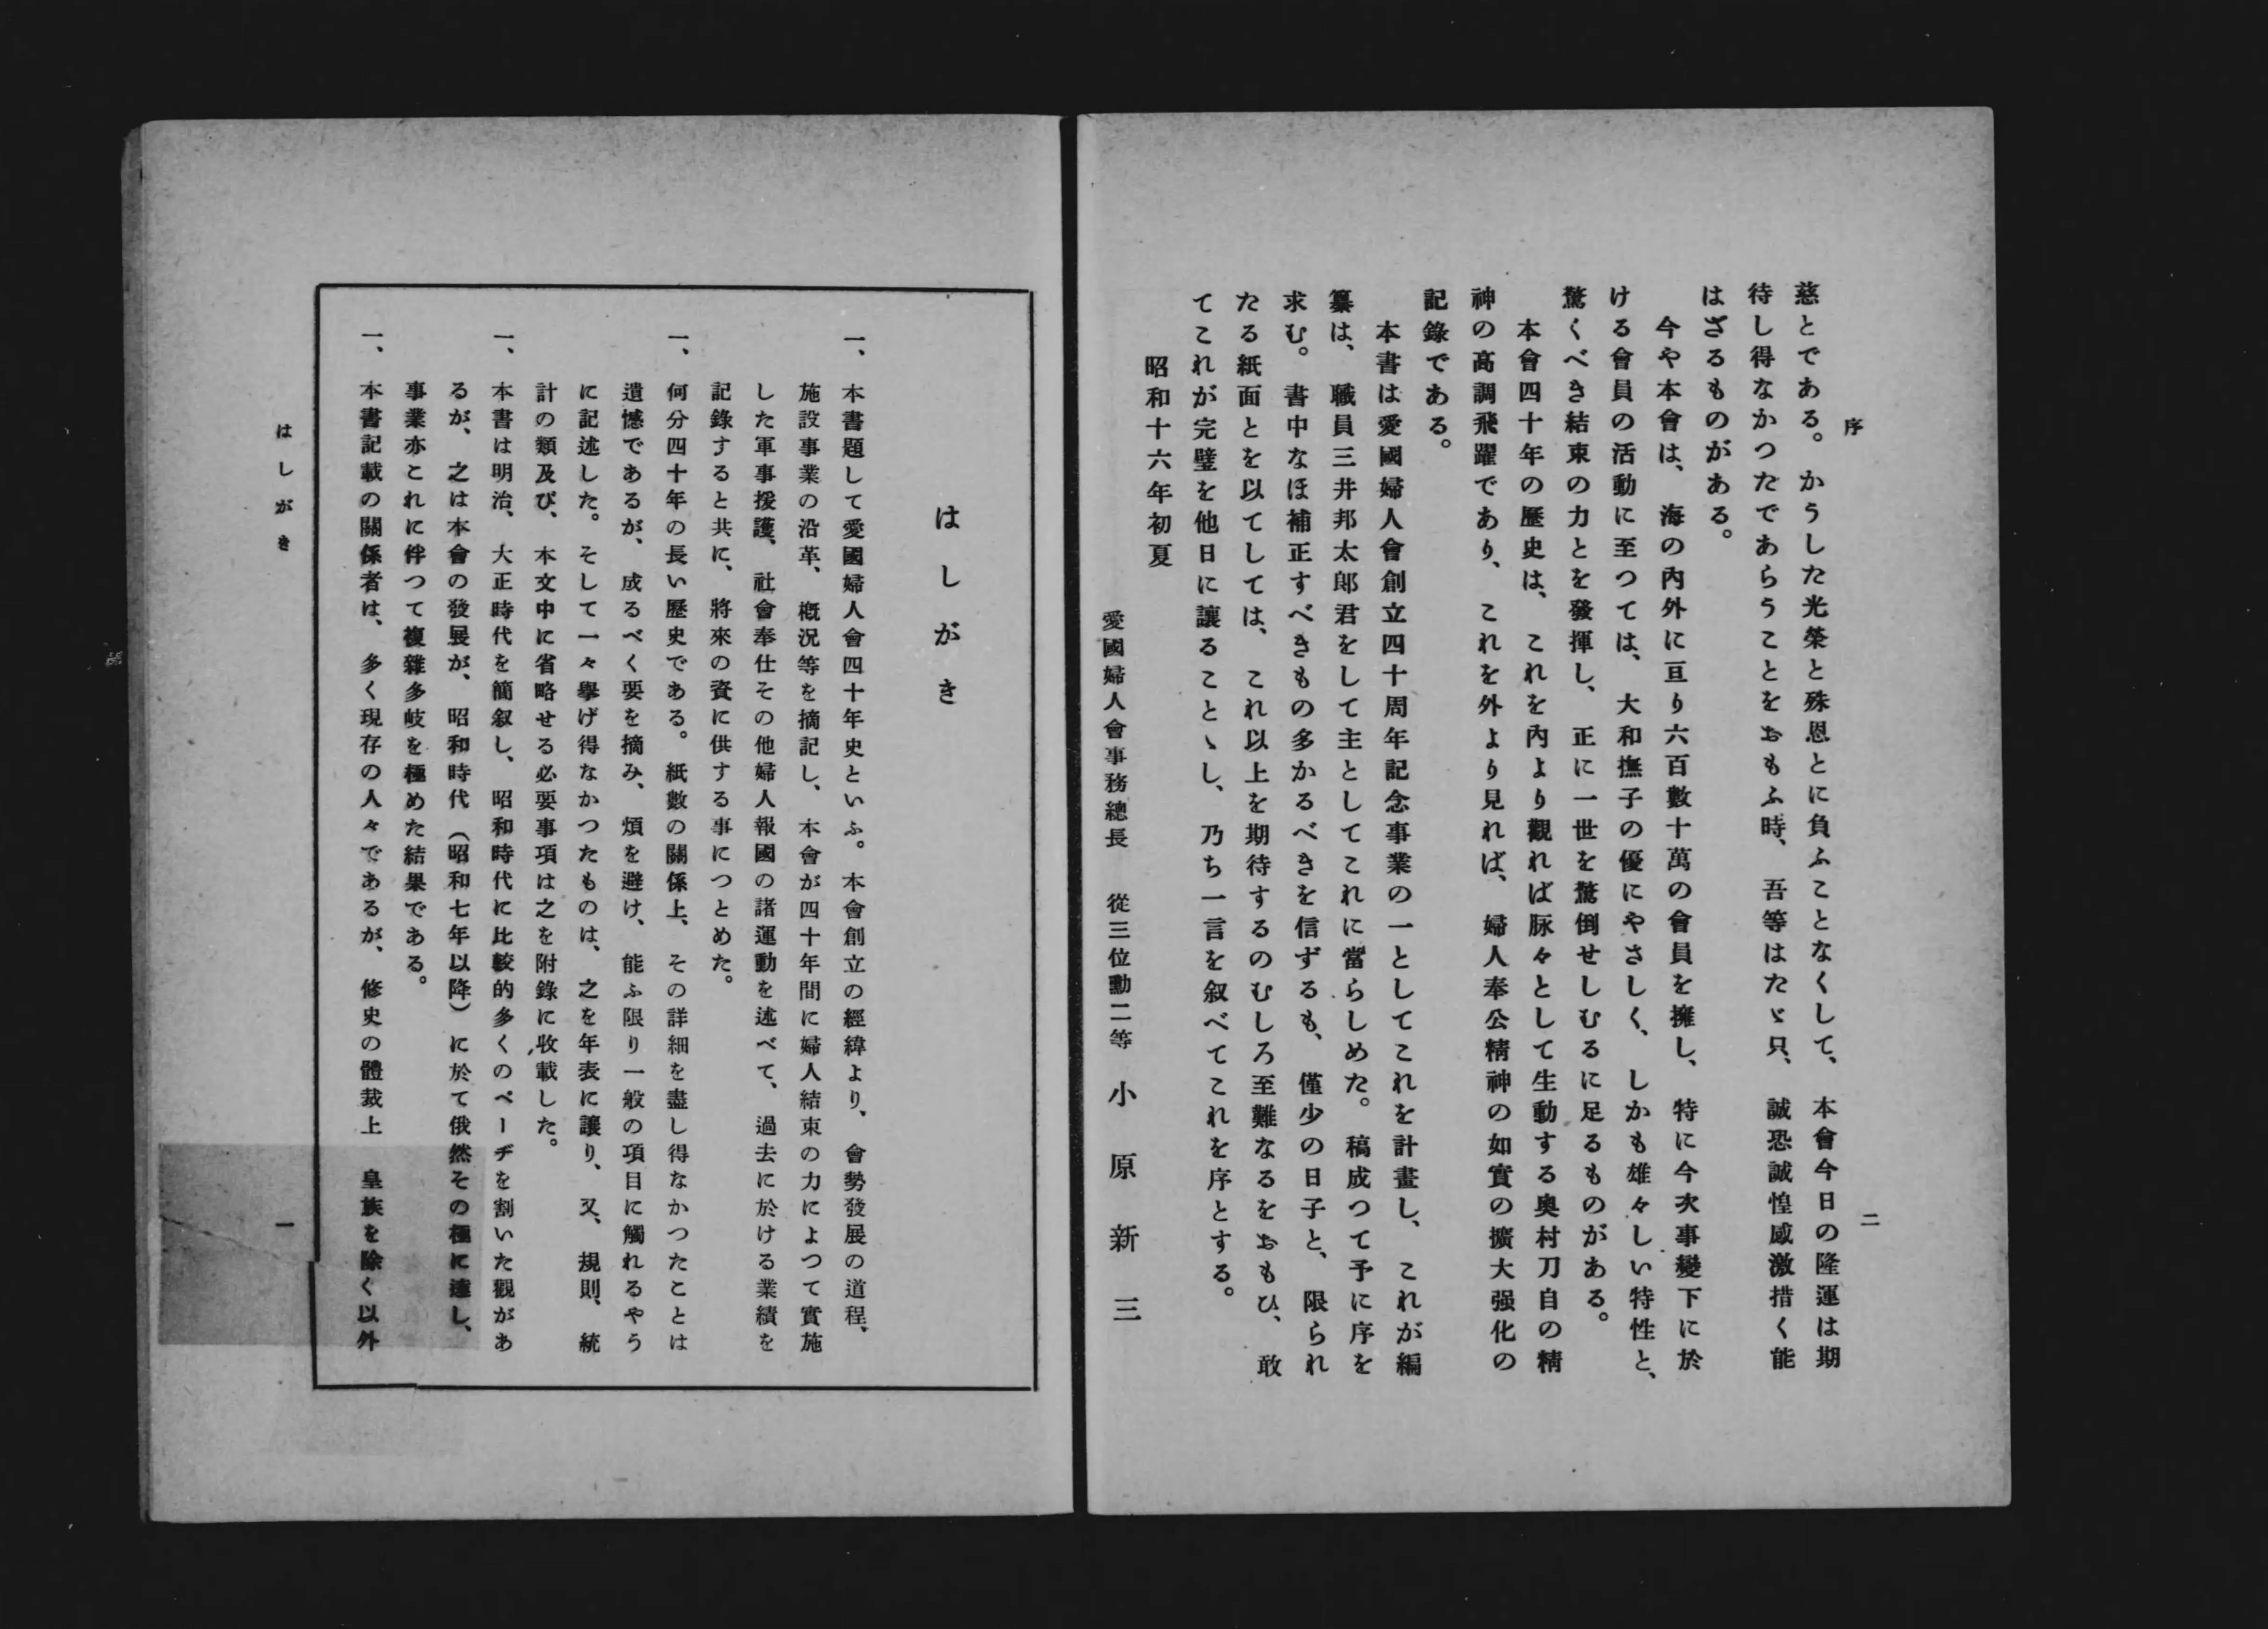 序
二
慈とである。かうした光榮と殊恩とに負ふことなくして、本會今日の隆運は期
待し得なかつたであらうことをおもふ時、吾等はたゞ只、誠恐誠惶感激措く能
はざるものがある。
今や本會は、海の內外に亘り六百數十萬の會員を擁し、特に今次事變下に於
ける會員の活動に至つては、大和撫子の優にやさしく、しかも雄々しい特性と、
驚くべき結束の力とを發揮し、正に一世を驚倒せしむるに足るものがある。
本會四十年の歷史は、これを內より觀れば脉々として生動する奧村刀自の精
神の高調飛躍であり、これを外より見れば、婦人奉公精神の如實の擴大强化の
記錄である。
本書は愛國婦人會創立四十周年記念事業の一としてこれを計畫し、これが編
纂は、職員三井邦太郞君をして主としてこれに當らしめた。稿成つて予に序を
求む。書中なほ補正すべきもの多かるべきを信ずるも、僅少の日子と、限られ
たる紙面とを以てしては、これ以上を期待するのむしろ至難なるをおもひ、敢
てこれが完璧を他日に讓ることゝし、乃ち一言を叙べてこれを序とする。
昭和十六年初夏
愛國婦人會事務總長 從三位勳二等 小原新三
はしがき
一、本書題して愛國婦人會四十年史といふ。本會創立の經緯より、會勢發展の道程、
施設事業の沿革、槪況等を摘記し、本會が四十年間に婦人結束の力によつて實施
した軍事援護、社會奉仕その他婦人報國の諸運動を述べて、過去に於ける業績を
記錄すると共に、將來の資に供する事につとめた。
一、何分四十年の長い歷史である。紙數の關係上、その詳細を盡し得なかつたことは
遺憾であるが、成るべく要を摘み、煩を避け、能ふ限り一般の項目に觸れるやう
に記述した。そして一々擧げ得なかつたものは、之を年表に讓り、又、規則、統
計の類及び、本文中に省略せる必要事項は之を附錄に收載した。
一、本書は明治、大正時代を簡叙し、昭和時代に比較的多くのペーヂを割いた觀があ
るが、之は本會の發展が、昭和時代（昭和七年以降）に於て俄然その極に達し、
事業亦これに伴つて複雜多岐を極めた結果である。
一、本書記載の關係者は、多く現存の人々であるが、修史の體裁上　皇族を除く以外
はしがき
一